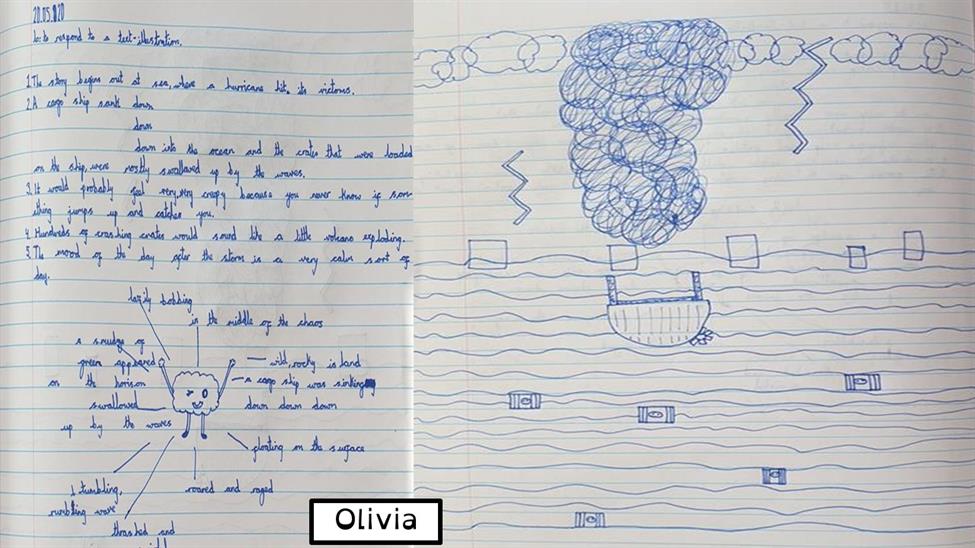 20.05.20
lo: to respond to a text-illustration.
1. The story begins out at sea, where a hurricane hit its victoms.
2. A cargo ship sank down
down
down into the ocean and the crates that were loaded
on the ship, were mostly swallowed up by the waves.
3. It would probably feel very, very creepy because you never know if som-
thing jumps up and catches you.
4. Hundreds of crashing crates would sound like a little volcano exploding.
5. The mood of the day after the storm is a very calm sort of
day.
lazily bobbing
in the middle of the chaos
a smudge of
green appeared
on the horison
wild, rocky island
a cargo ship was sinking
down down down
swallowed
up by the waves
floating on the surface
tumbling,
rumbling wave
roared and raged
thrashed and
Olivia